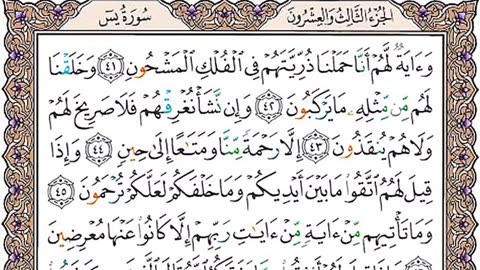 الجزء الثالث والعشرون
سورة يس
وَءَايَةٌ لَّهُمْ أَنَّا حَمَلْنَا ذُرِّيَّتَهُمْ فِي الْفُلْكِ الْمَشْحُونِ ٤١ وَخَلَقْنَا
لَهُم مِّن مِّثْلِهِ مَا يَرْكَبُونَ ٤٢ وَإِن نَّشَأْ نُغْرِقْهُمْ فَلَا صَرِيخَ لَهُمْ
وَلَا هُمْ يُنقَذُونَ ٤٣ إِلَّا رَحْمَةً مِّنَّا وَمَتَاعًا إِلَىٰ حِينٍ ٤٤ وَإِذَا
قِيلَ لَهُمُ اتَّقُوا مَا بَيْنَ أَيْدِيكُمْ وَمَا خَلْفَكُمْ لَعَلَّكُمْ تُرْحَمُونَ ٤٥
وَمَا تَأْتِيهِم مِّنْ ءَايَةٍ مِّنْ ءَايَاتِ رَبِّهِمْ إِلَّا كَانُوا عَنْهَا مُعْرِضِينَ